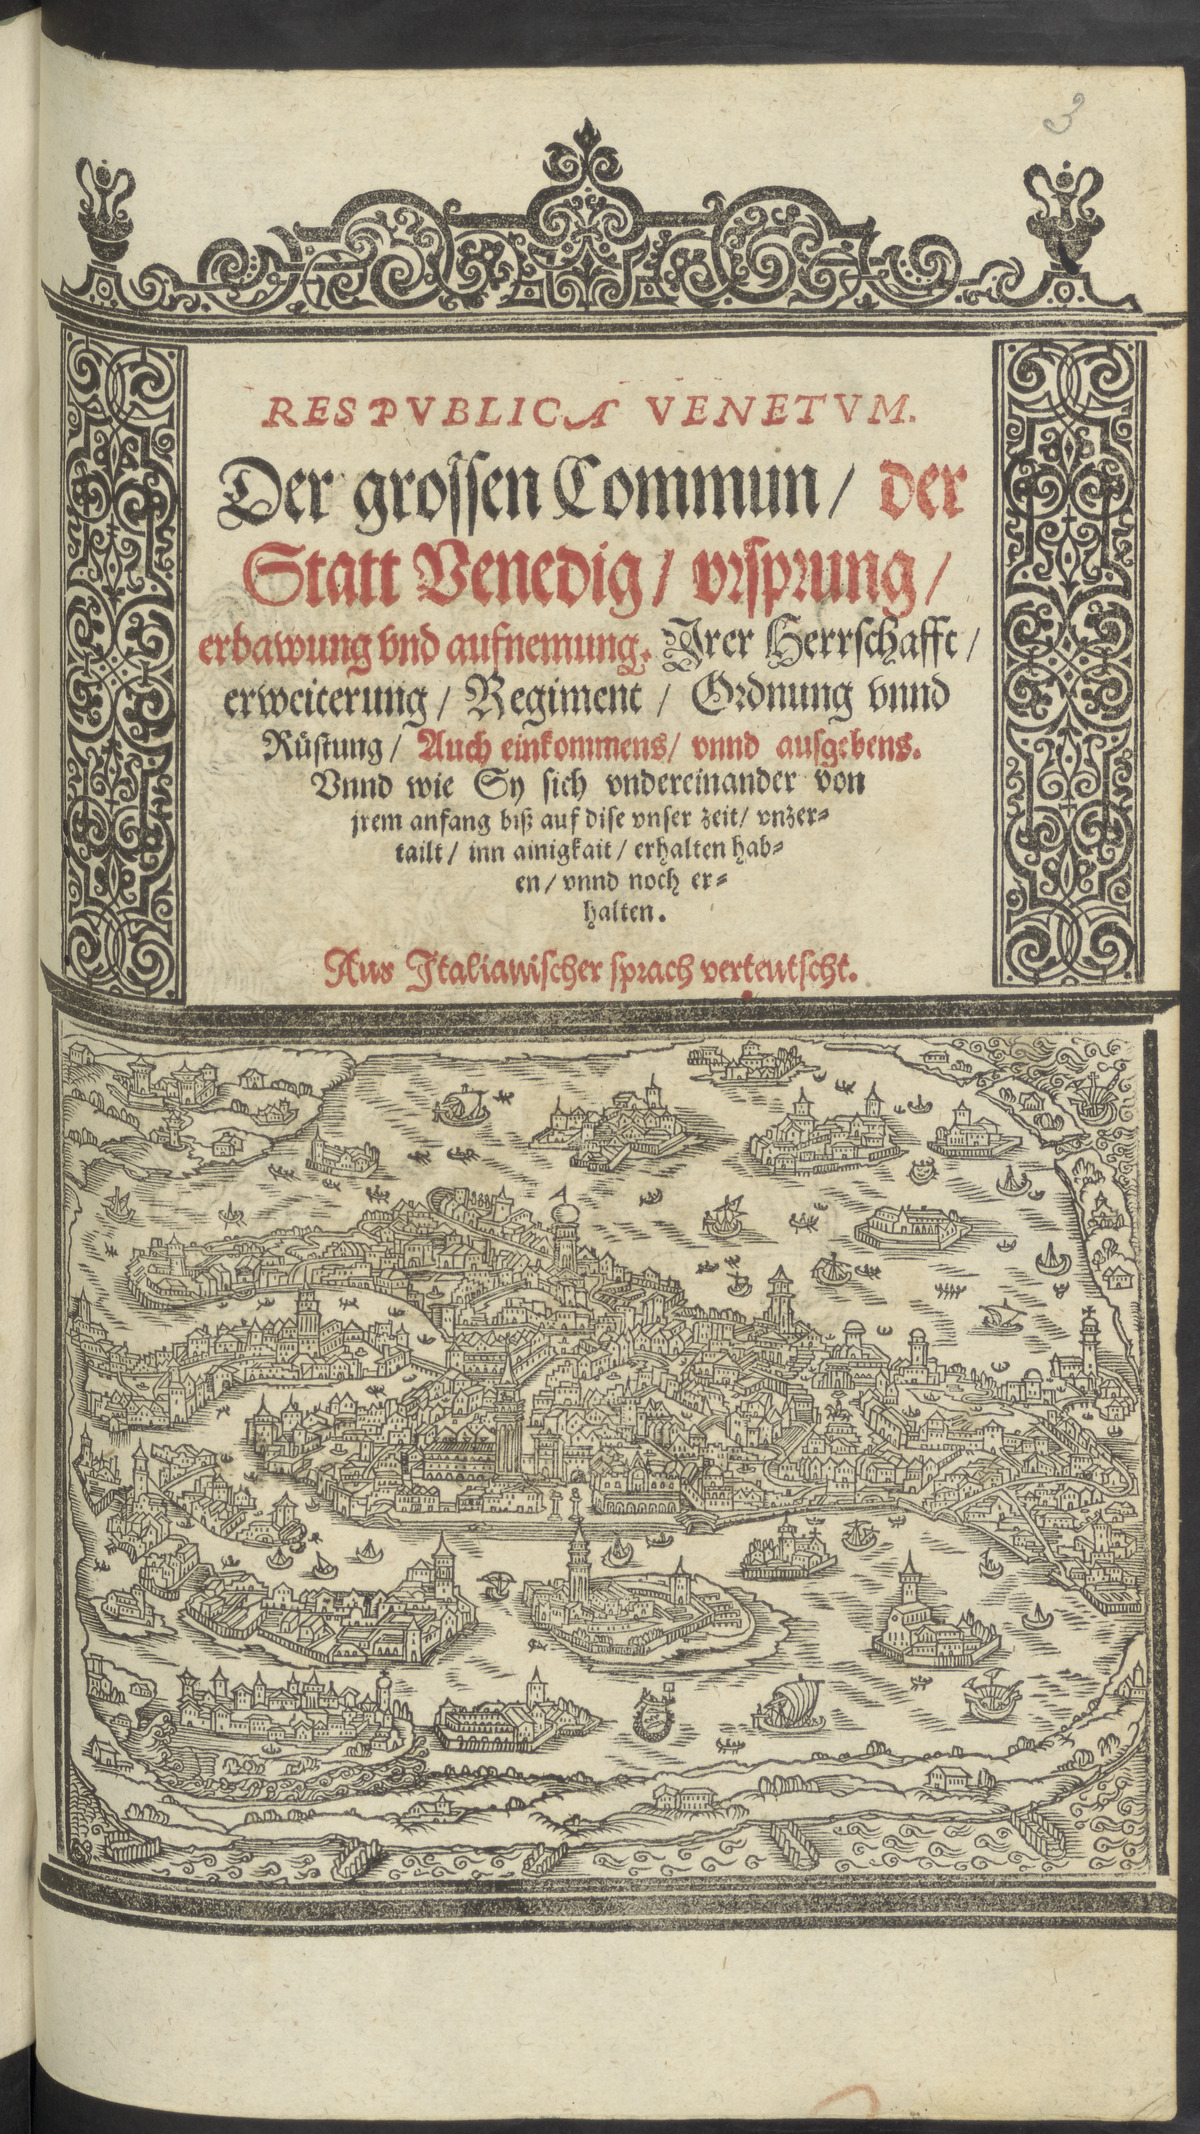 3
RESPVBLICA VENETVM.
Der grossen Commun / der
Statt Venedig / vrsprung /
erbawung vnd aufnemung. Irer Herrschafft /
erweiterung / Regiment / Ordnung vnnd
Rüstung / Auch einkommens / vnnd ausgebens.
Vnnd wie Sy sich vndereinander von
jrem anfang biß auf dise vnser zeit / vnzer⸗
tailt / inn ainigkait / erhalten hab⸗
en / vnnd noch er⸗
halten.
Aus Italianischer sprach verteutscht.